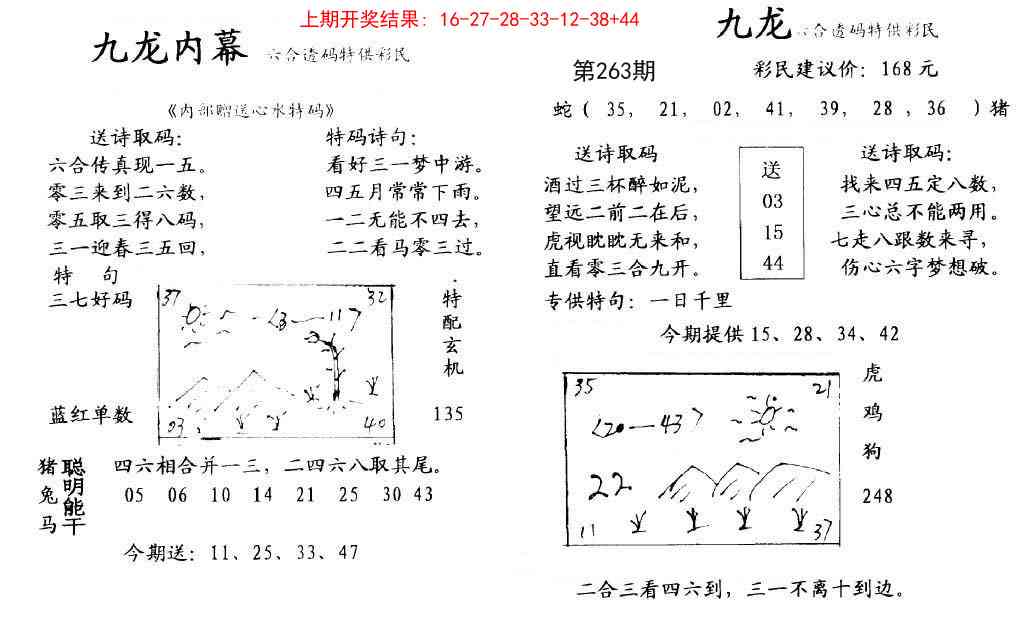 上期开奖结果：16-27-28-33-12-38+44
九龙内幕 六合透码特供彩民
《内部赠送心水特码》
送诗取码：
六合传真现一五。
零三来到二六数，
零五取三得八码，
三一迎春三五回，
特码诗句：
看好三一梦中游。
四五月常常下雨。
一二无能不四去，
二二看马零三过。
特 句
三七好码
蓝红单数
37 32
13—117
03 40
特配玄机
135
猪兔马
聪明能干
四六相合并一三，二四六八取其尾。
05 06 10 14 21 25 30 43
今期送：11、25、33、47
九龙 六合透码特供彩民
第263期 彩民建议价：168元
蛇（ 35， 21， 02， 41， 39， 28 ，36 ）猪
送诗取码
酒过三杯醉如泥，
望远二前二在后，
虎视眈眈无来和，
直看零三合九开。
送
03
15
44
送诗取码：
找来四五定八数，
三心总不能两用。
七走八跟数来寻，
伤心六字梦想破。
专供特句：一日千里
今期提供15、28、34、42
35 21
20—43
22
11 37
虎
鸡
狗
248
二合三看四六到，三一不离十到边。